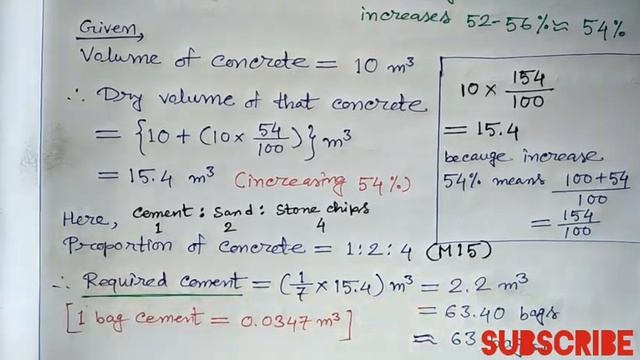 increases 52-56% ≈ 54%
Given,
Volume of concrete = 10 m³
∴ Dry volume of that concrete
= {10 + (10 × 54/100)} m³
= 15.4 m³ (increasing 54%)
10 × 154/100
= 15.4
becauge increase
54% means 100+54/100
= 154/100
Here, Cement : Sand : Stone chips
1 2 4
Proportion of concrete = 1:2:4 (M15)
∴ Required cement = (1/7 × 15.4) m³ = 2.2 m³
[1 bag cement = 0.0347 m³]
= 63.40 bags
≈ 63
SUBSCRIBE